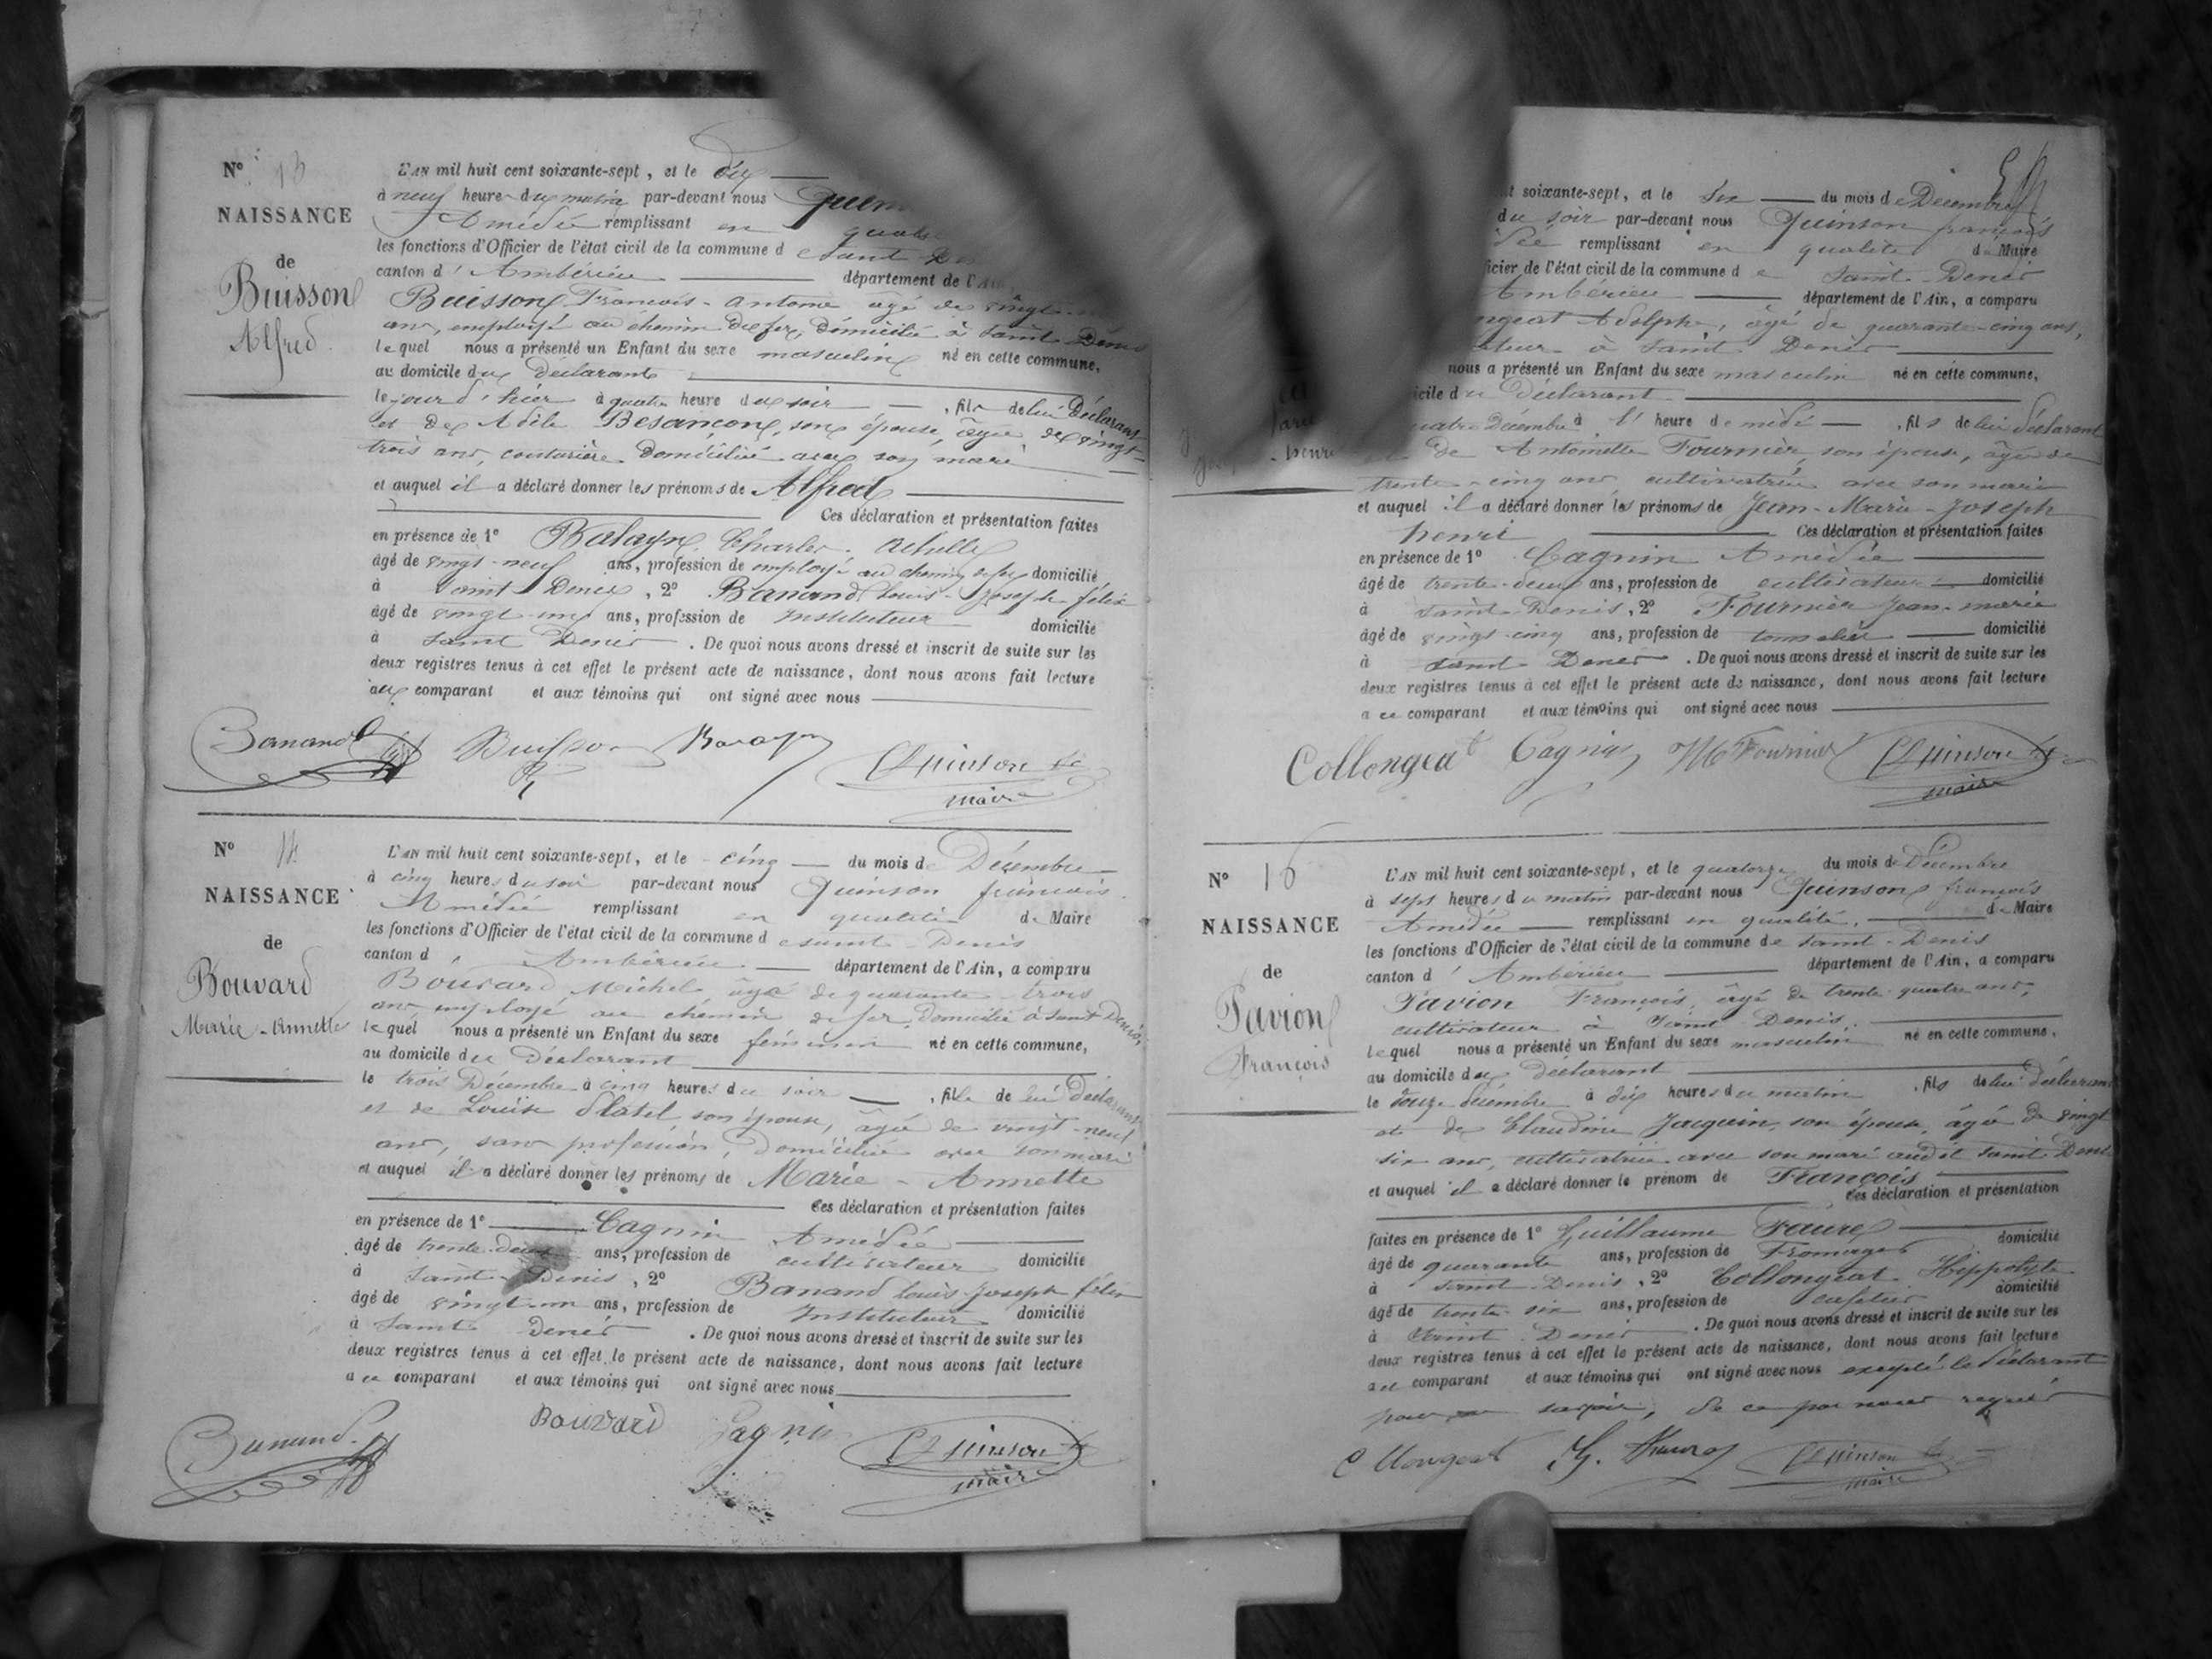 N° 13
NAISSANCE
de
Buisson
Alfred
L'AN mil huit cent soixante-sept, et le dix
à neuf heures du matin par-devant nous
Amédée remplissant en
les fonctions d'Officier de l'état civil de la commune de Saint
canton d'Ambérieu département de l'Ain
Buisson François-Antoine âgé de vingt
ans, employé au chemin de fer, domicilié à Saint Denis
lequel nous a présenté un Enfant du sexe masculin né en cette commune,
au domicile du Déclarant
le jour d'hier à quatre heure du soir, fils de lui Déclarant
et de Adèle Besançon, son épouse, âgée de vingt-
trois ans, couturière domiciliée avec son mari
et auquel il a déclaré donner les prénoms de Alfred
Ces déclaration et présentation faites
en présence de 1° Charles Achille
âgé de vingt-neuf ans, profession de employé au chemin de fer domicilié
à Saint Denis, 2° Banand Louis-Joseph félix
âgé de vingt un ans, profession de Instituteur domicilié
à Saint Denis. De quoi nous avons dressé et inscrit de suite sur les
deux registres tenus à cet effet le présent acte de naissance, dont nous avons fait lecture
au comparant et aux témoins qui ont signé avec nous
Banand Buisson Quinson
maire
N° 14
NAISSANCE
de
Bouvard
Marie-Annette
L'AN mil huit cent soixante-sept, et le cinq du mois de Décembre
à cinq heures du soir par-devant nous Quinson françois
Amédée remplissant en qualité de Maire
les fonctions d'Officier de l'état civil de la commune de saint-Denis
canton d'Ambérieu département de l'Ain, a comparu
Bouvard Michel âgé de quarante-trois
ans employé au chemin de fer, domicilié à Saint Denis,
lequel nous a présenté un Enfant du sexe féminin né en cette commune,
au domicile du Déclarant
le trois Décembre à cinq heures du soir, fille de lui Déclarant
et de Louise son épouse, âgée de vingt-neuf
ans, sans profession, domiciliée avec son mari
et auquel il a déclaré donner les prénoms de Marie-Annette
Ces déclaration et présentation faites
en présence de 1° Cagnin Amédée
âgé de trente-deux ans, profession de cultivateur domicilié
à Saint-Denis, 2° Banand Louis-Joseph félix
âgé de vingt-un ans, profession de Instituteur domicilié
à Saint Denis. De quoi nous avons dressé et inscrit de suite sur les
deux registres tenus à cet effet le présent acte de naissance, dont nous avons fait lecture
à ce comparant et aux témoins qui ont signé avec nous
Banand Bouvard Cagnin Quinson
maire
soixante-sept, et le six du mois de Décembre
du soir par-devant nous Quinson françois
remplissant en qualité de Maire
de l'état civil de la commune de Saint Denis
Ambérieu département de l'Ain, a comparu
Adolphe, âgé de quarante-cinq ans,
à Saint Denis
nous a présenté un Enfant du sexe masculin né en cette commune,
du Déclarant
Décembre à l'heure de midi, fils de lui déclarant
de Antoinette Fournier, son épouse, âgée de
trente-cinq ans cultivatrice avec son mari
et auquel il a déclaré donner les prénoms de Jean-Marie-Joseph
henri Ces déclaration et présentation faites
en présence de 1° Cagnin Amédée
âgé de trente-deux ans, profession de cultivateur domicilié
à Saint Denis, 2° Fournier Jean-marie
âgé de vingt-cinq ans, profession de tonnelier domicilié
à Saint Denis. De quoi nous avons dressé et inscrit de suite sur les
deux registres tenus à cet effet le présent acte de naissance, dont nous avons fait lecture
à ce comparant et aux témoins qui ont signé avec nous
Collongeat Cagnin Fournier Quinson
maire
N° 16
NAISSANCE
de
Pavion
François
L'AN mil huit cent soixante-sept, et le quatorze du mois de Décembre
à sept heures du matin par-devant nous Quinson françois
Amédée remplissant en qualité de Maire
les fonctions d'Officier de l'état civil de la commune de Saint-Denis
canton d'Ambérieu département de l'Ain, a comparu
Pavion François, âgé de trente-quatre ans,
cultivateur à Saint Denis
lequel nous a présenté un Enfant du sexe masculin né en cette commune,
au domicile du déclarant
le douze décembre à dix heures du matin, fils de lui déclarant
et de Claudine Jacquin, son épouse, âgée de vingt
six ans, cultivatrice avec son mari audit Saint Denis
et auquel il a déclaré donner le prénom de François
Ces déclaration et présentation
faites en présence de 1° Guillaume Faure domicilié
âgé de quarante ans, profession de Fromager
à Saint Denis, 2° Collongeat Hippolyte
âgé de trente-six ans, profession de cafetier domicilié
à Saint Denis. De quoi nous avons dressé et inscrit de suite sur les
deux registres tenus à cet effet le présent acte de naissance, dont nous avons fait lecture
au comparant et aux témoins qui ont signé avec nous excepté le déclarant
pour ne savoir, de ce par nous requis
Collongeat Quinson
maire